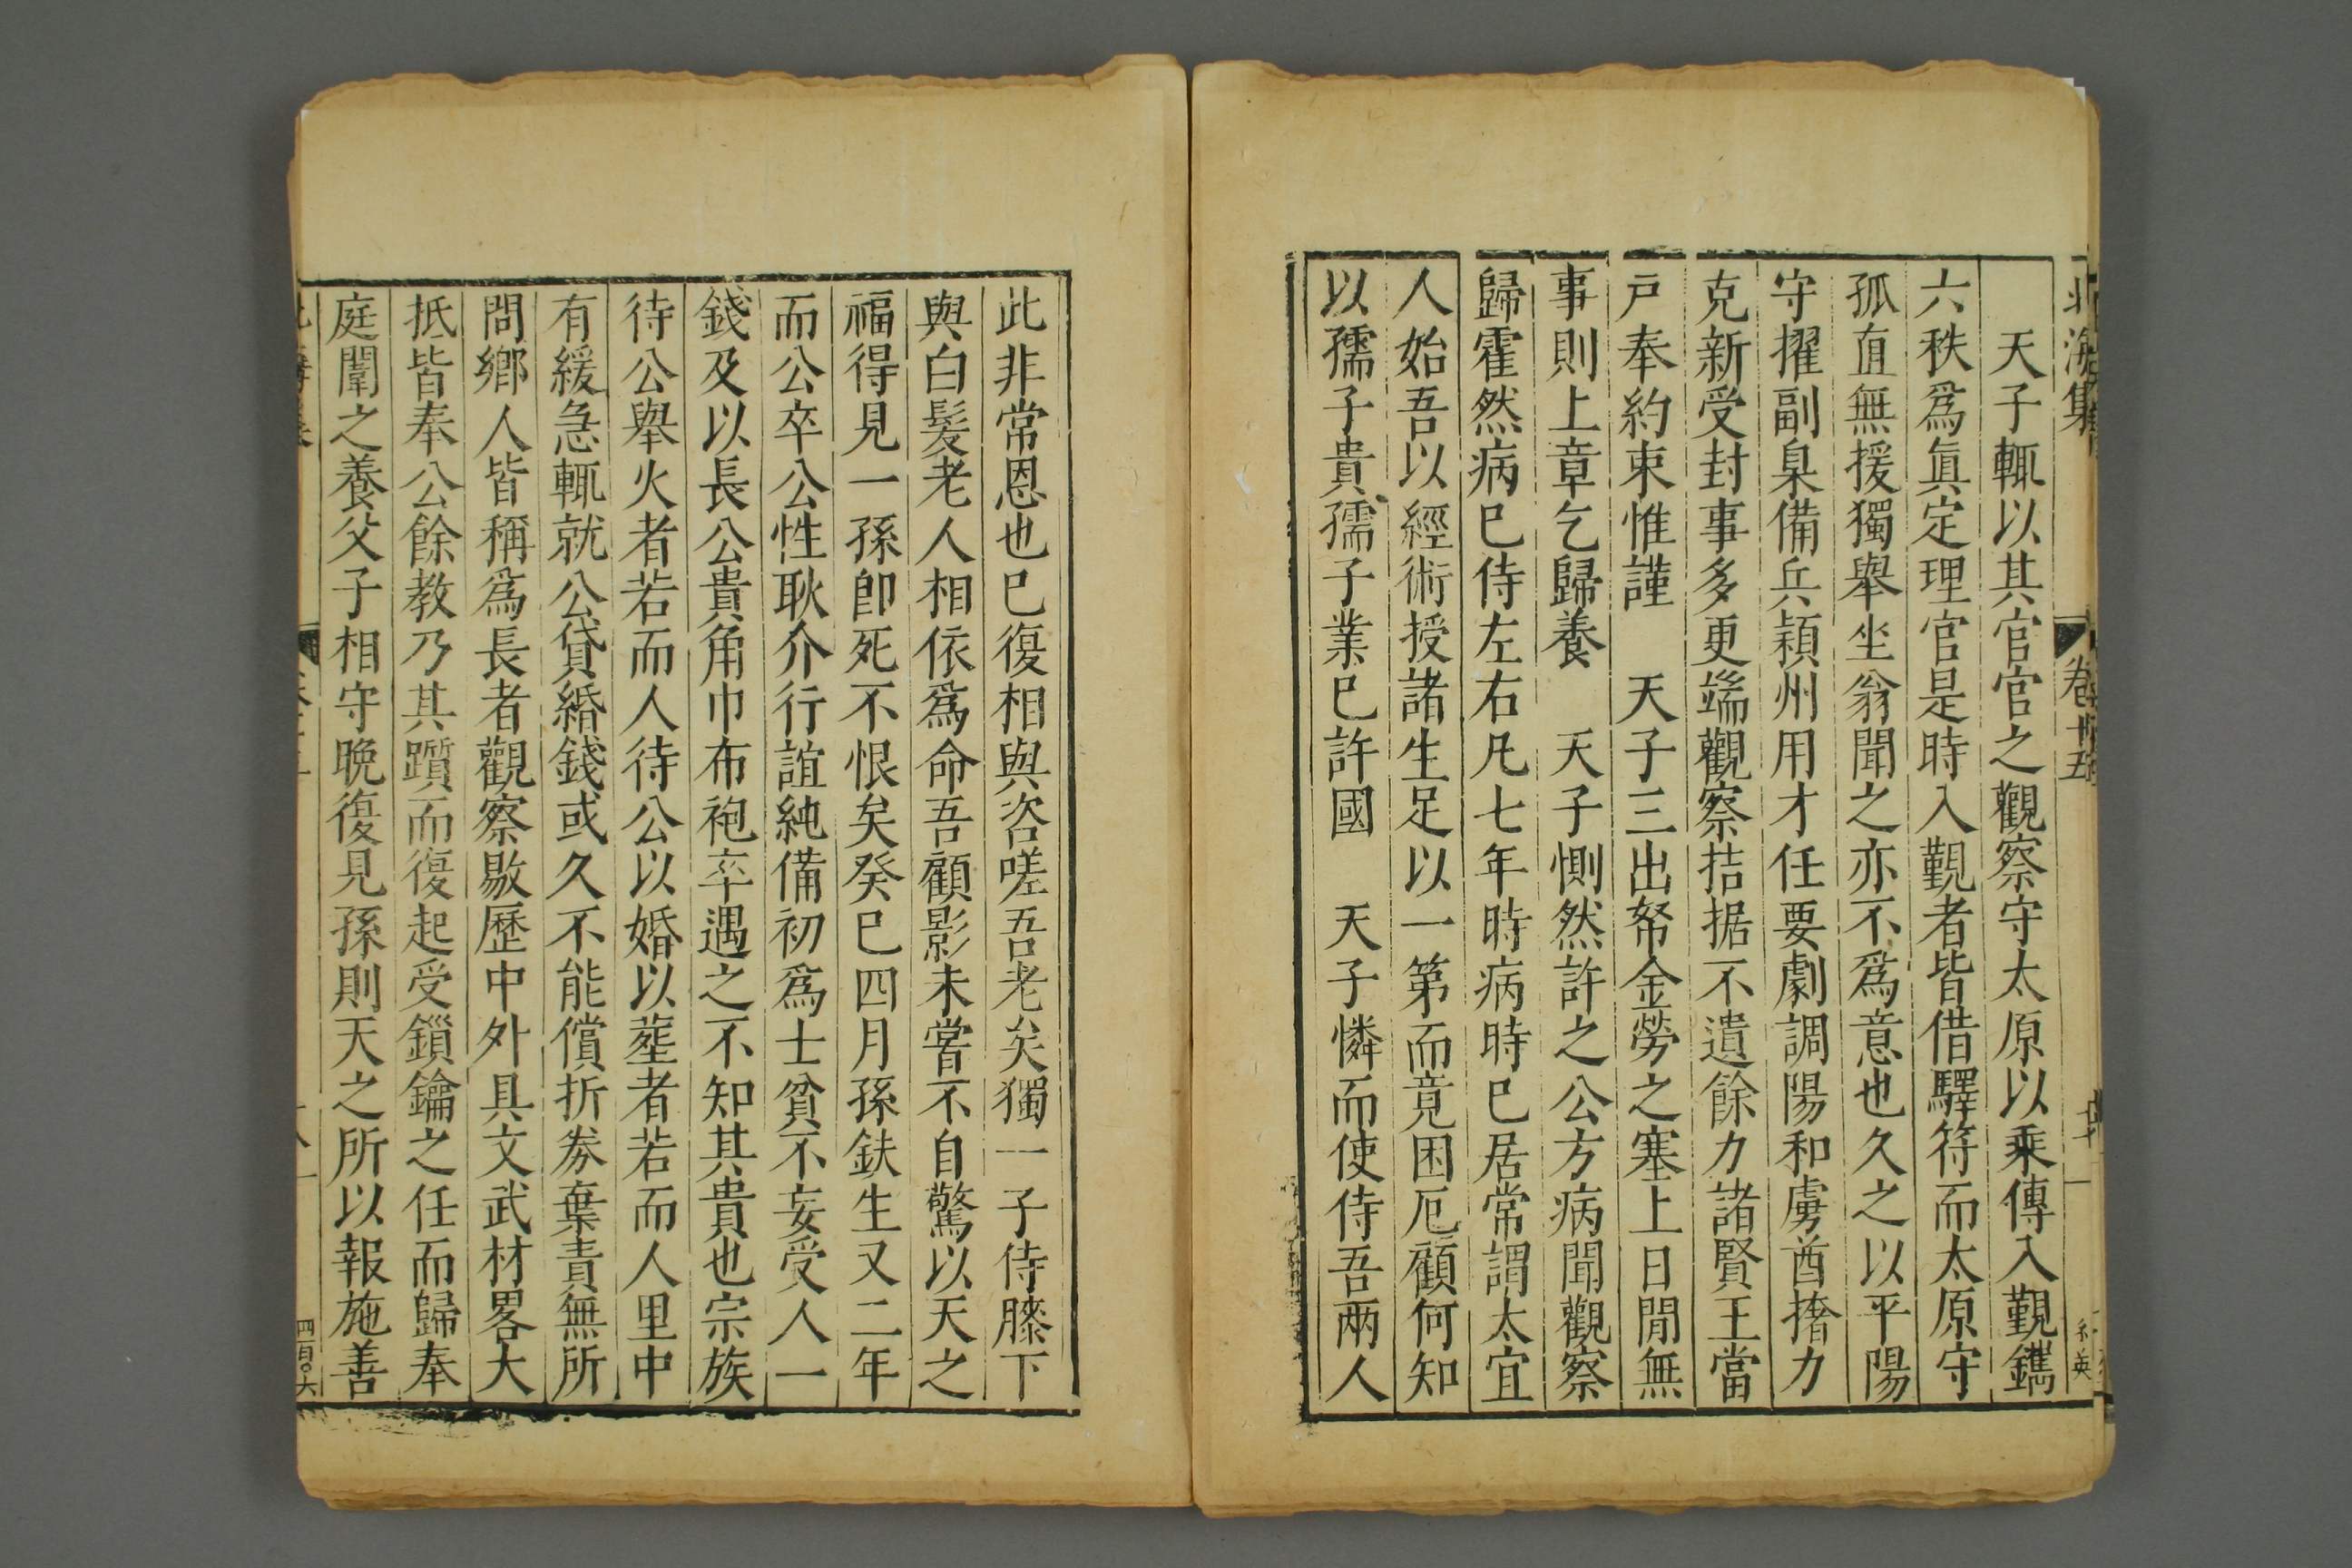 北海集 卷十五
天子輒以其官官之觀察守太原以乘傳入覲鐫
六秩爲眞定理官是時入覲者皆借驛符而太原守
孤直無援獨舉坐翁聞之亦不爲意也久之以平陽
守擢副臬備兵潁州用才任要劇調陽和虜酋撦力
克新受封事多更端觀察拮据不遺餘力諸賢王當
戸奉約束惟謹 天子三出帑金勞之塞上日閒無
事則上章乞歸養 天子惻然許之公方病聞觀察
歸霍然病已侍左右凡七年時病時已居常謂太宜
人始吾以經術授諸生足以一第而竟困厄顧何知
以孺子貴孺子業已許國 天子憐而使侍吾兩人
此非常恩也已復相與咨嗟吾老矣獨一子侍膝下
與白髮老人相依爲命吾顧影未嘗不自驚以天之
福得見一孫卽死不恨矣癸巳四月孫鈇生又二年
而公卒公性耿介行誼純備初爲士貧不妄受人一
錢及以長公貴角巾布袍卒遇之不知其貴也宗族
待公舉火者若而人待公以婚以葬者若而人里中
有緩急輒就公貸緡錢或久不能償折劵棄責無所
問鄉人皆稱爲長者觀察敭歷中外具文武材畧大
抵皆奉公餘教乃其躓而復起受鎖鑰之任而歸奉
庭闈之養父子相守晩復見孫則天之所以報施善
四百〇六